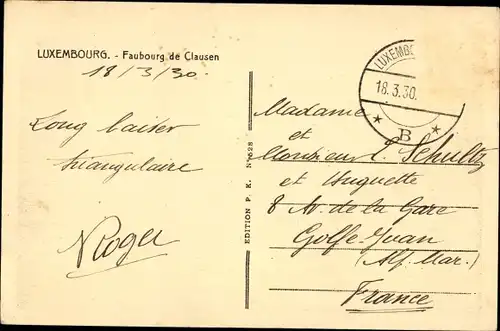 LUXEMBOURG. - Faubourg de Clausen
18/3/30.
Long baiser
triangulaire
Roger
EDITION P. K. Nº 628
LUXEMBO
18.3.30.
* B *
Madame
et
Monsieur L. Schultz
et Huguette
8 Av. de la Gare
Golfe-Juan
(Alp. Mar.)
France